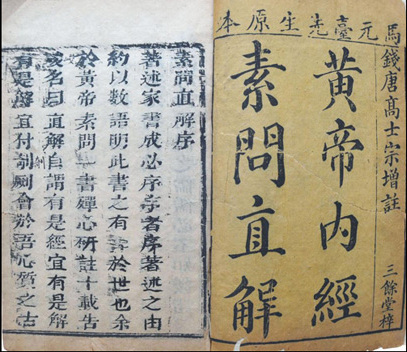 馬元臺先生原本
錢唐高士宗增註
黃帝內經
素問直解
三餘堂梓
素問直解序
著述家書成必序序者序著述之由
約以數語明此書之有於世也余
於黃帝素問一書殫心研註十載告
成名曰直解自謂有是經宜有是解
有是解宜付剞劂會於吾心質之古